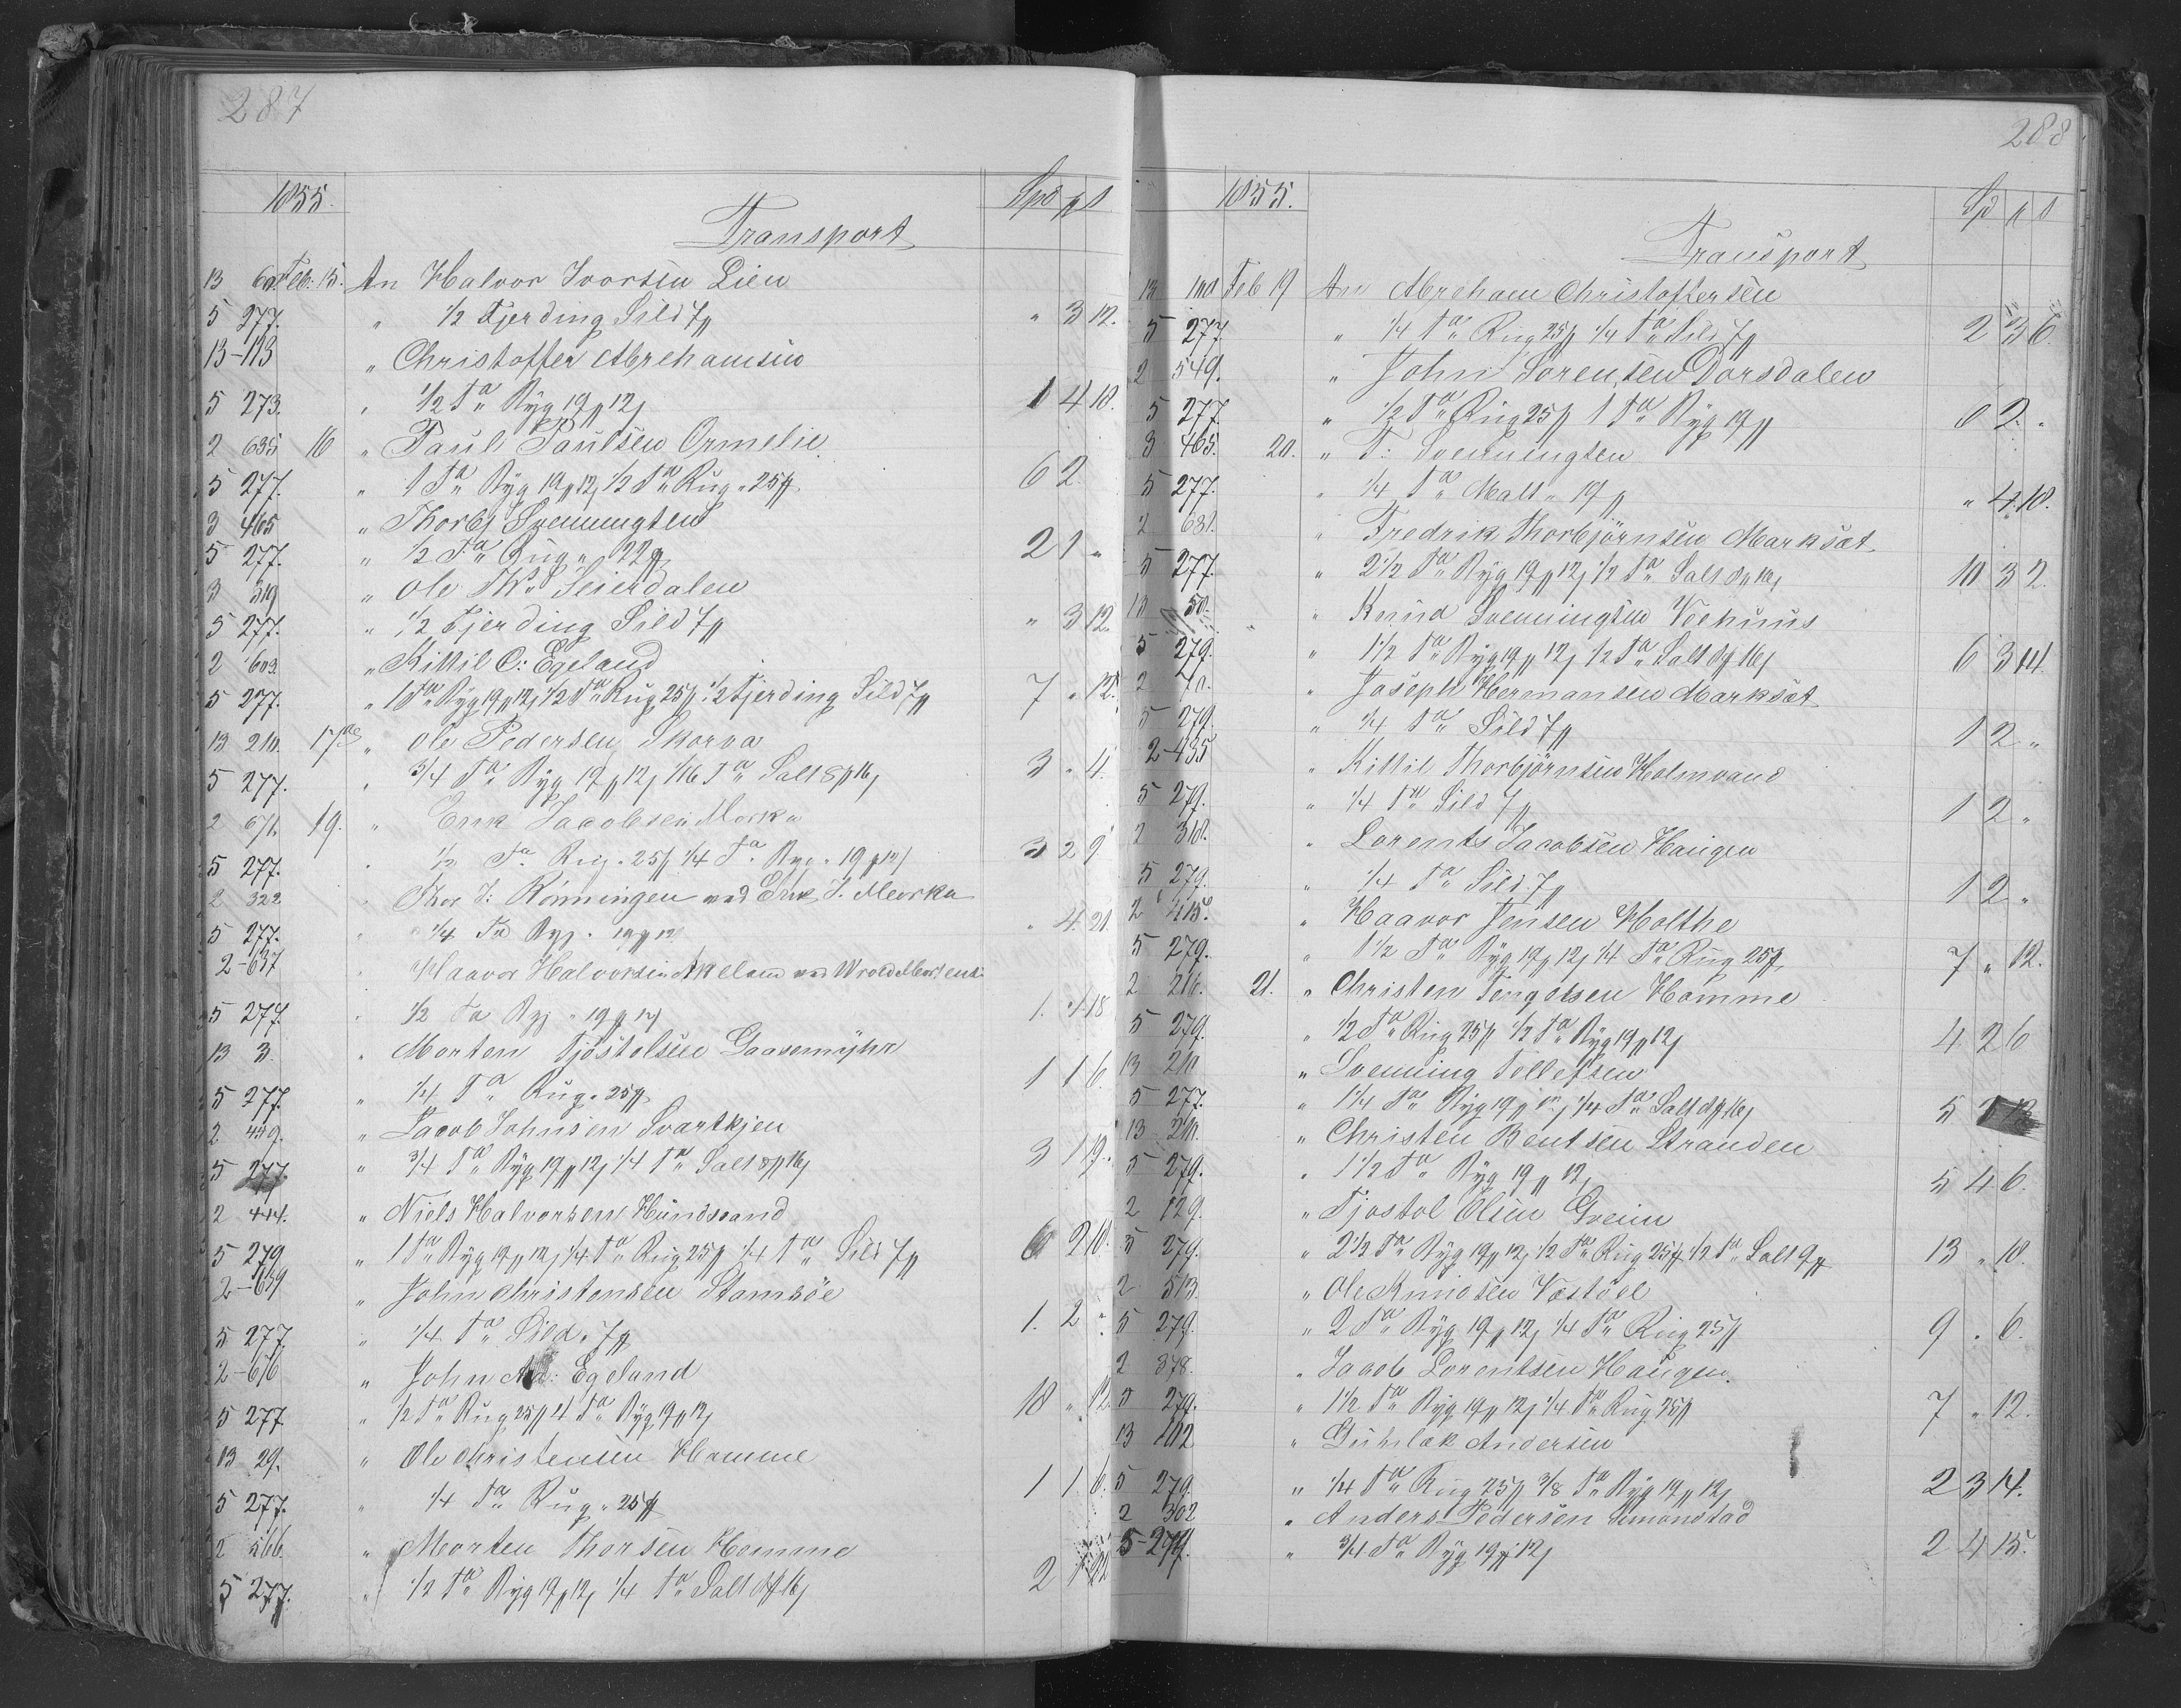 287
1855.
Spd p s
Transport
13 60 Feb: 15. An Halvor Ivorsen Lien
5 277. " 1/2 Fjerding Sild 7 p " 3 12.
13-113 " Christoffer Abrehamsen
5 273. " 1/2 Ta Byg 19 p 12 s 1 4 18.
2 635 16 " Paul Paulsen Ormelie.
5 277. " 1 Ta Byg 19 p 12 s 1/2 Ta Rug " 25 p 6 2
3 465 " Thorbj Svenningsen
5 277. " 1/2 Ta Rug " 22 p 2 1 "
3 319 " Ole Th. Seierdalen
5 277. " 1/2 Fjerding Sild 7 p " 3 12.
2 603. " Kittil O: Egeland
5 277. " 1 Ta Byg 19 p 12 s 1/2 Ta Rug 25 p 1/2 Fjerding Sild 7 p 7 " 12.
13 210. 17de " Ole Pedersen Skorva
5 277. " 3/4 Ta Byg 19 p 12 s 1/16 Ta Salt 8 p 16 s 3 " 4.
2 671. 19. " Erik Jacobsen Morka
5 277. " 1/2 Ta Rug " 25 p 1/4 Ta Byg " 19 p 12 s 3 2 9
2 322 " Thor J: Rönningen ved Erik J. Morka
5 277. " 1/4 Ta Byg " 19 p 12 " 4 21.
2-637 " Haavor Halvorsen Akeland ved Wrold Mortens.
5 277. " 1/2 Ta Byg " 19 p 12 s 1. 4 18
13 3. " Morten Tjöstolsen Gaasemyhr
5 277. " 1/4 Ta Rug " 25 p 1 1 6.
2 459. " Jacob Johnsen Svartkjen
5 277. " 3/4 Ta Byg 19 p 12 s 1/4 Ta Salt 8 p 16 s 3 1 19.
2 444. " Niels Halvorsen Hundsvand
5 279 " 1 Ta Byg 19 p 12 s 1/4 Ta Rug 25 p 1/4 Ta Sild 7 p 6 2 18.
2-639 " John Christensen Stamsöe
5 277. " 1/4 Ta Sild " 7 p 1. 2 "
2-676 " John Ad: Egeland
5 277 " 1/2 Ta Rug 25 p 4 Ta Byg 19 p 12 s 18 " 12.
13 29. " Ole Christensen Homme
5 277. " 1/4 Ta Rug " 25 p 1 1 6.
2 566. " Morten Thorsen Homme
5 277. " 1/2 Ta Byg 19 p 12 s 1/4 Ta Salt 8 p 16 s 2
288
1855.
Spd p s
Transport
13 Feb 19 An Abreham Christoffersen
5 277. " 1/4 Ta Rug 25 p 1/4 Ta Sild 7 p 2 3 6.
2 549. " John Sörensen Dorsdalen
5 277. " 1/2 Ta Rug 25 p 1 Ta Byg 19 p 6 2. "
3 465. 20. " T: Svenningsen
5 277. " 1/4 Ta Malt " 19 p " 4 18.
2 631. " Fredrik Thorbjörnsen Marksæt
5 277. " 2 1/2 Ta Byg 19 p 12 s 1/2 Ta Salt 8 p 16 s 10 3 2.
13 50. " Knud Svenningsen Veehuus
5 279. " 1 1/2 Ta Byg 19 p 12 s 1/2 Ta Salt 8 p 16 s 6 3 14.
2 70. " Joseph Hermansen Marksæt
5 279. " 1/4 Ta Sild 7 p 1 2 "
2-435 " Kittil Thorbjörnsen Holmvand
5 279. " 1/4 Ta Sild 7 p 1 2 "
2 318. " Lorents Jacobsen Haugen
5 279. " 1/4 Ta Sild 7 p 1 2 "
2 415. " Haavor Jensen Holthe
5 279. " 1 1/2 Ta Byg 19 p 12 s 1/4 Ta Rug 25 p 7 " 12.
2 216. 21. " Christen Tengelsen Homme
5 279. " 1/2 Ta Rug 25 p 1/2 Ta Byg 19 p 12 s 4 2 6
13 210 " Svenning Tellefsen
5 277. " 1 1/4 Ta Byg 19 p 12 s 1/4 Ta Salt 8 p 16 s 5
13 210. " Christen Bentsen Stranden
5 279. " 1 1/2 Ta Byg 19 p 12 s 5 4 6.
2 129. " Tjostol Olsen Greim
5 279. " 2 1/2 Ta Byg 19 p 12 s 1/2 Ta Rug 25 p 1/2 Ta Salt 9 p 13 " 18.
2 513. " Ole Knudsen Vestöel
5 279. " 2 Ta Byg 19 p 12 s 1/4 Ta Rug 25 p 9 " 6.
2 378. " Jacob Lorentsen Haugen.
5 279. " 1 1/2 Ta Byg 19 p 12 s 1/4 Ta Rug 25 p 7 " 12.
13 102 " Guhlak Andersen
5 279. " 1/4 Ta Rug 25 p 3/8 Ta Byg 19 p 12 s 2 3 14.
2 302 " Anders Pedersen Simonstad
5-279. " 3/4 Ta Byg 19 p 12 s 2 4 15.